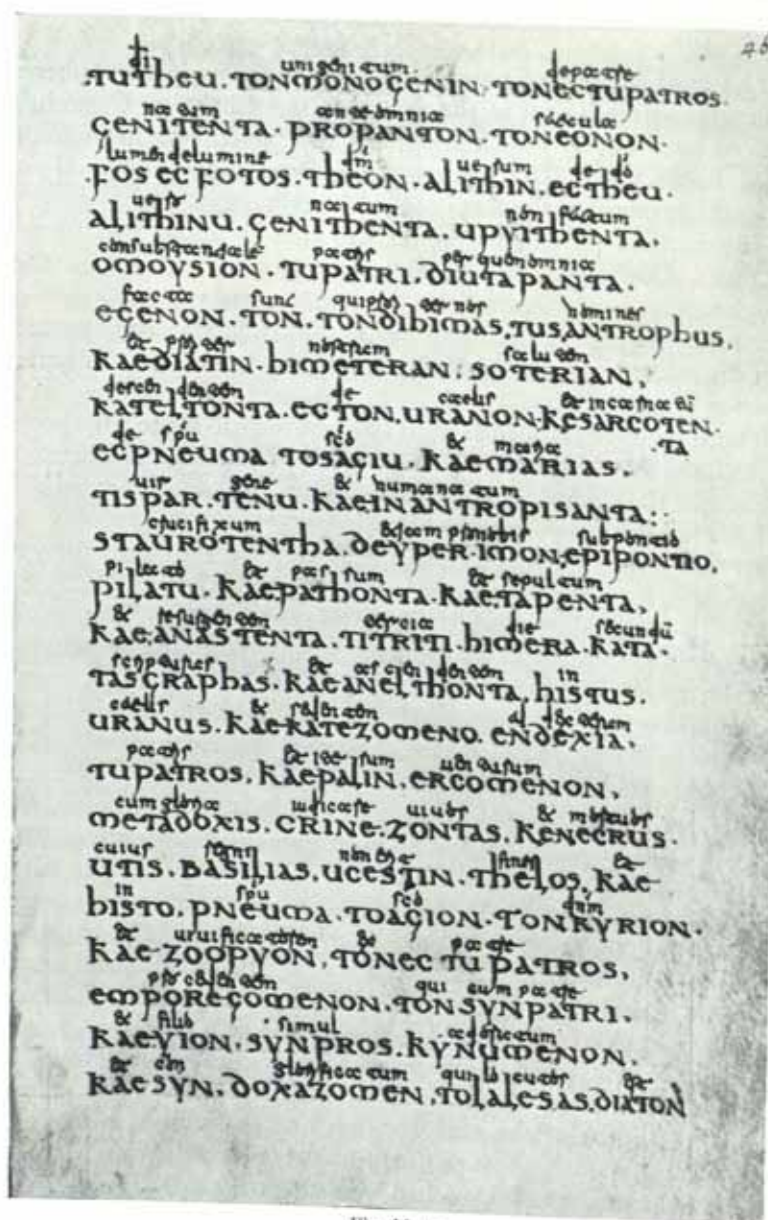 di unigenitum de patre
.TUTHEU. TONMONOGENIN. TONECTUPATROS.
natum ante omnia sæcula
GENITENTA. PROPANTON. TONEONON.
lumen de lumine dm uerum de dō
.FOS EC FOTOS. THEON. ALITHIN. ECTHEU.
uero natum non factum
ALITHINU. GENITHENTA. UPYITHENTA.
consubstantiale patris per quem omnia
OMOYSION. TUPATRI. DIUTAPANTA.
facta sunt qui propter nos homines
EGENON. TON. TONDIHIMAS. TUS, ANTROPHUS.
& propter nostram salutem
KAEDIATIN. HIMETERAN. SOTERIAN.
descendentem de caelis & incarnatū
KATELTONTA. ECTON. URANON. KESARCOTEN.
de spu scō & maria .TA
ECPNEUMA TOSAGIU. KAEMARIAS.
uirgine & humanatum
TISPAR. TENU. KAEINANTROPISANTA:
crucifixum sub pontio
STAUROTENTHA. DEYPER. IMON. EPIPONTIO.
pilato & passum & sepultum
PILATU. KAEPATHONTA. KAE. TAPENTA.
& resurgentem tertia die secundū
KAE. ANASTENTA. TITRITI. HIMERA. KATA.
scripturas & ascendentem in
TASGRAPHAS. KAEANELTHONTA. HISTUS.
caelos & sedentem ad dexteram
URANUS. KAEKATEZOMENO. ENDEXIA.
patris & iterum uenturum
TUPATROS. KAEPALIN. ERCOMENON.
cum gloria iudicare uiuos & mortuos
METADOXIS. CRINE. ZONTAS. KENECRUS.
cuius regni non erit finis &
UTIS. BASILIAS. UCESTIN. THELOS. KAE
in spu scō dnm
HISTO. PNEUMA. TOAGION. TONKYRION.
& uiuificatorem & patre
KAE ZOOPYON. TONEC TU PATROS.
procedentem qui cum patre
EMPOREGOMENON. TON SYNPATRI.
& filio simul adoratum
KAEYION. SYNPROS. KYNUMENON.
& glorificatum qui locutus
KAESYN. DOXAZOMEN. TOLALESAS. DIATON